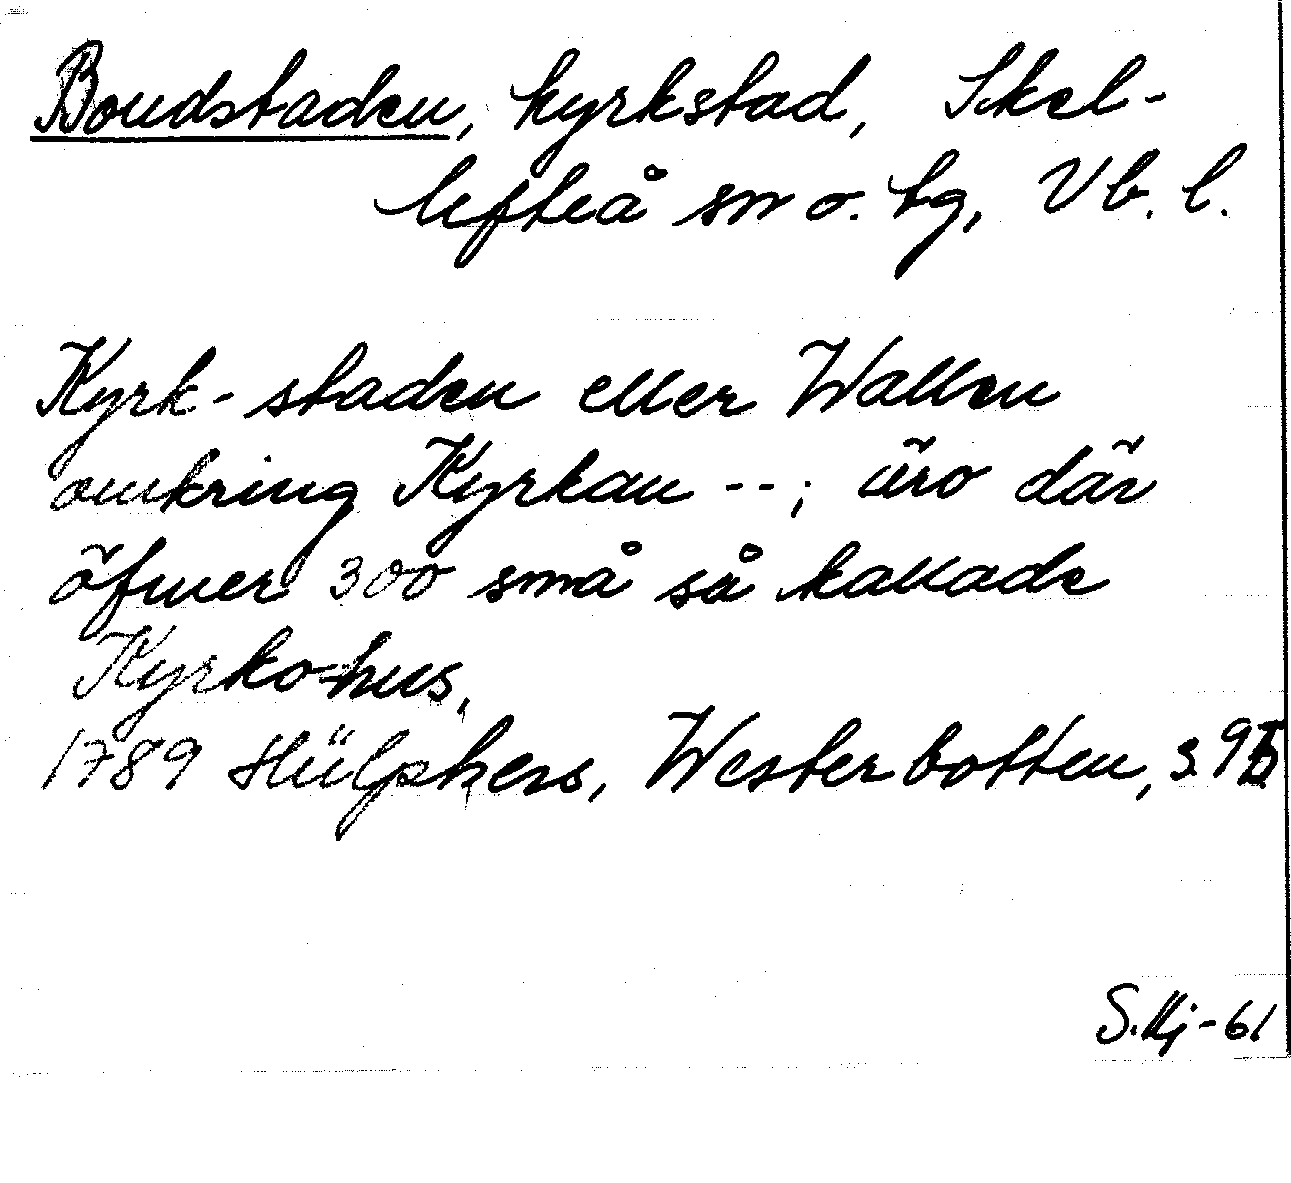 Bondstaden, kyrkstad, Skel-
lefteå sn o. tg, Vb. l.
Kyrk-staden eller Wallen
omkring Kyrkan --; äro där
öfwer 300 små så kallade
Kyrko=hus,
1789 Hülphers, Westerbotten, s.
S.Hj-61